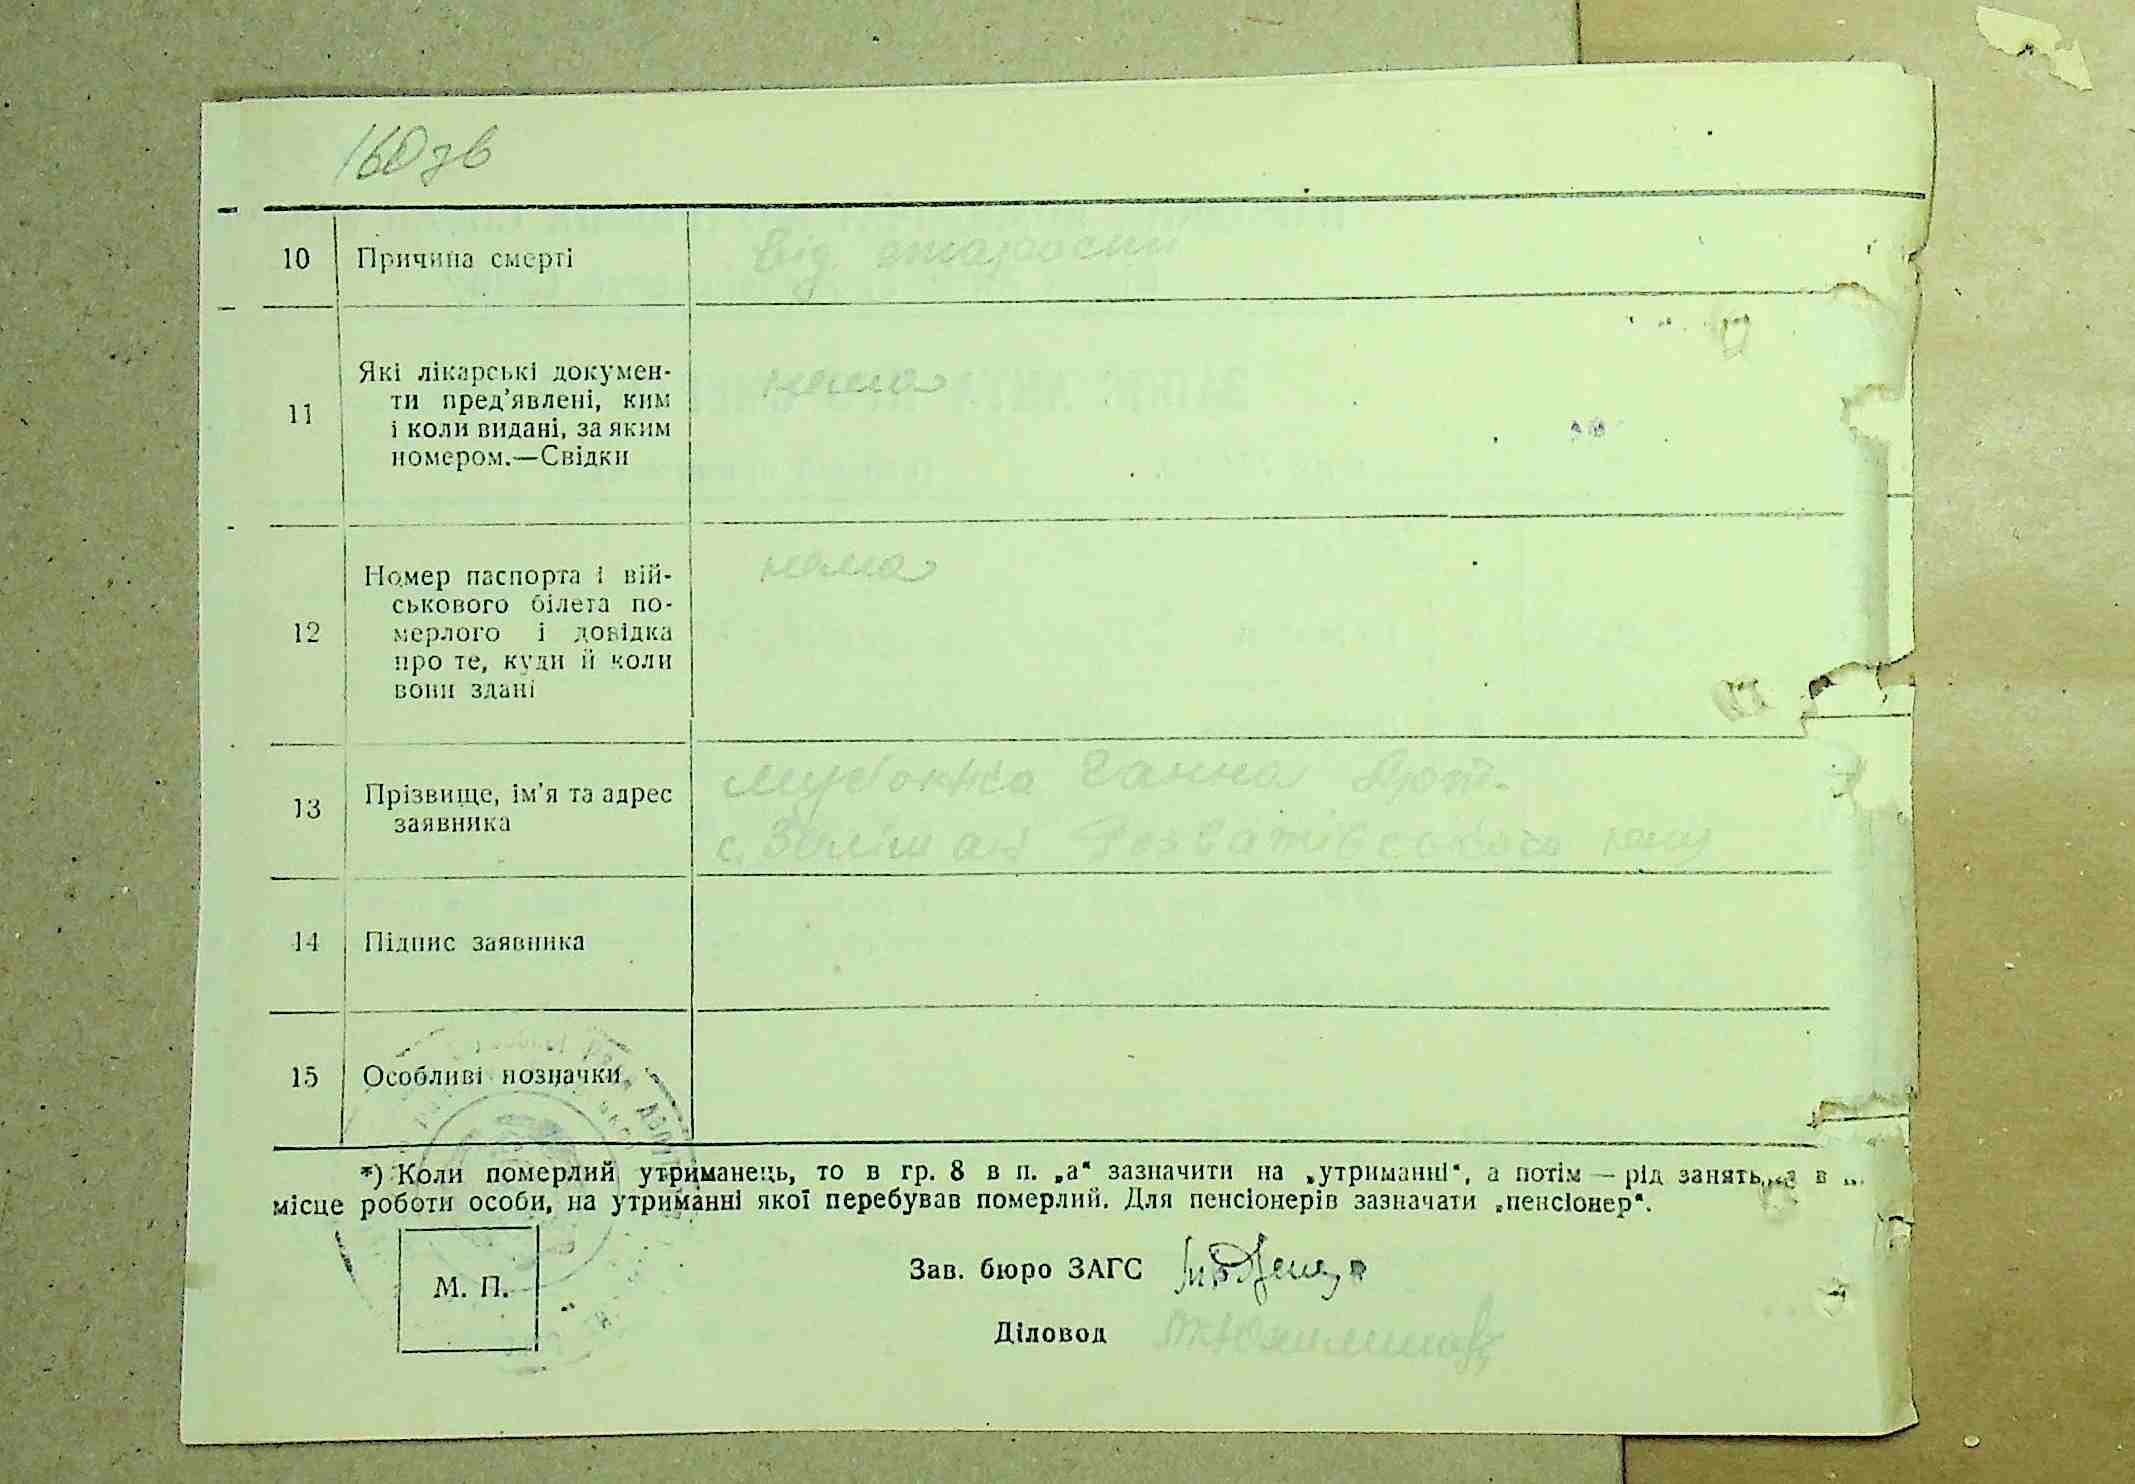 160 зв
10 Причина смерті від старости
11 Які лікарські докумен-
ти пред’явлені, ким
і коли видані, за яким
номером.—Свідки
нема
12 Номер паспорта і вій-
ськового білета по-
мерлого і довідка
про те, куди й коли
вони здані
нема
13 Прізвище, ім’я та адрес
заявника
Ганна
с.
14 Підпис заявника
15 Особливі позначки
*) Коли померлий утриманець, то в гр. 8 в п. „а“ зазначити на „утриманні“, а потім — рід занять, а в
місце роботи особи, на утриманні якої перебував померлий. Для пенсіонерів зазначати „пенсіонер“.
М. П.
Зав. бюро ЗАГС
Діловод